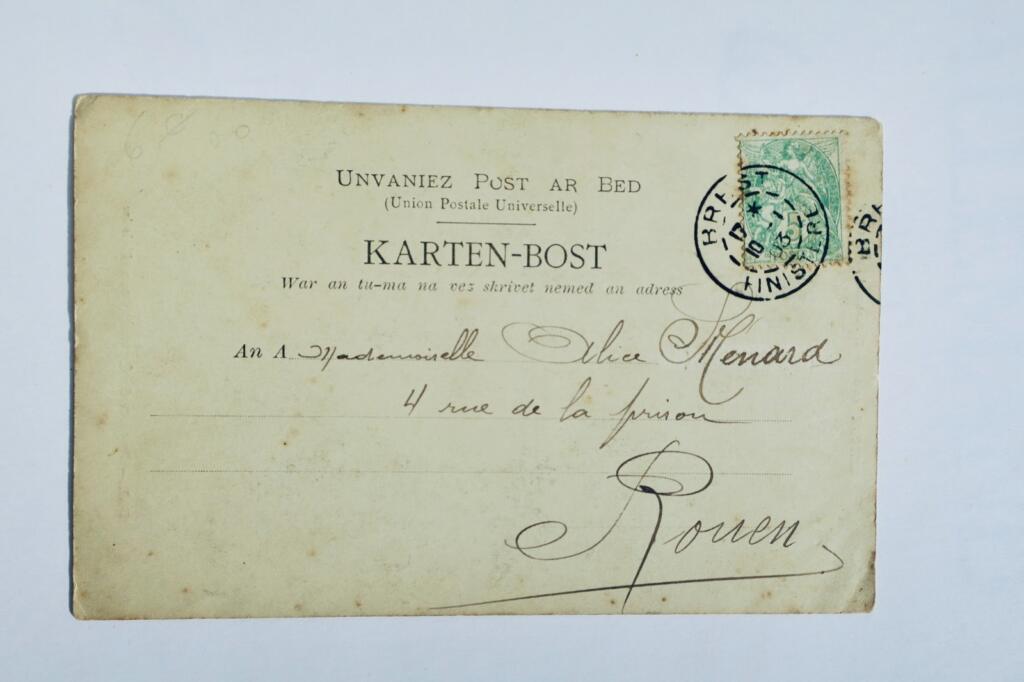 UNVANIEZ POST AR BED
(Union Postale Universelle)
KARTEN-BOST
War an tu-ma na vez skrivet nemed an adress
An A Mademoiselle Alice Menard
4 rue de la prison
Rouen
BREST
FINISTERE
BRE